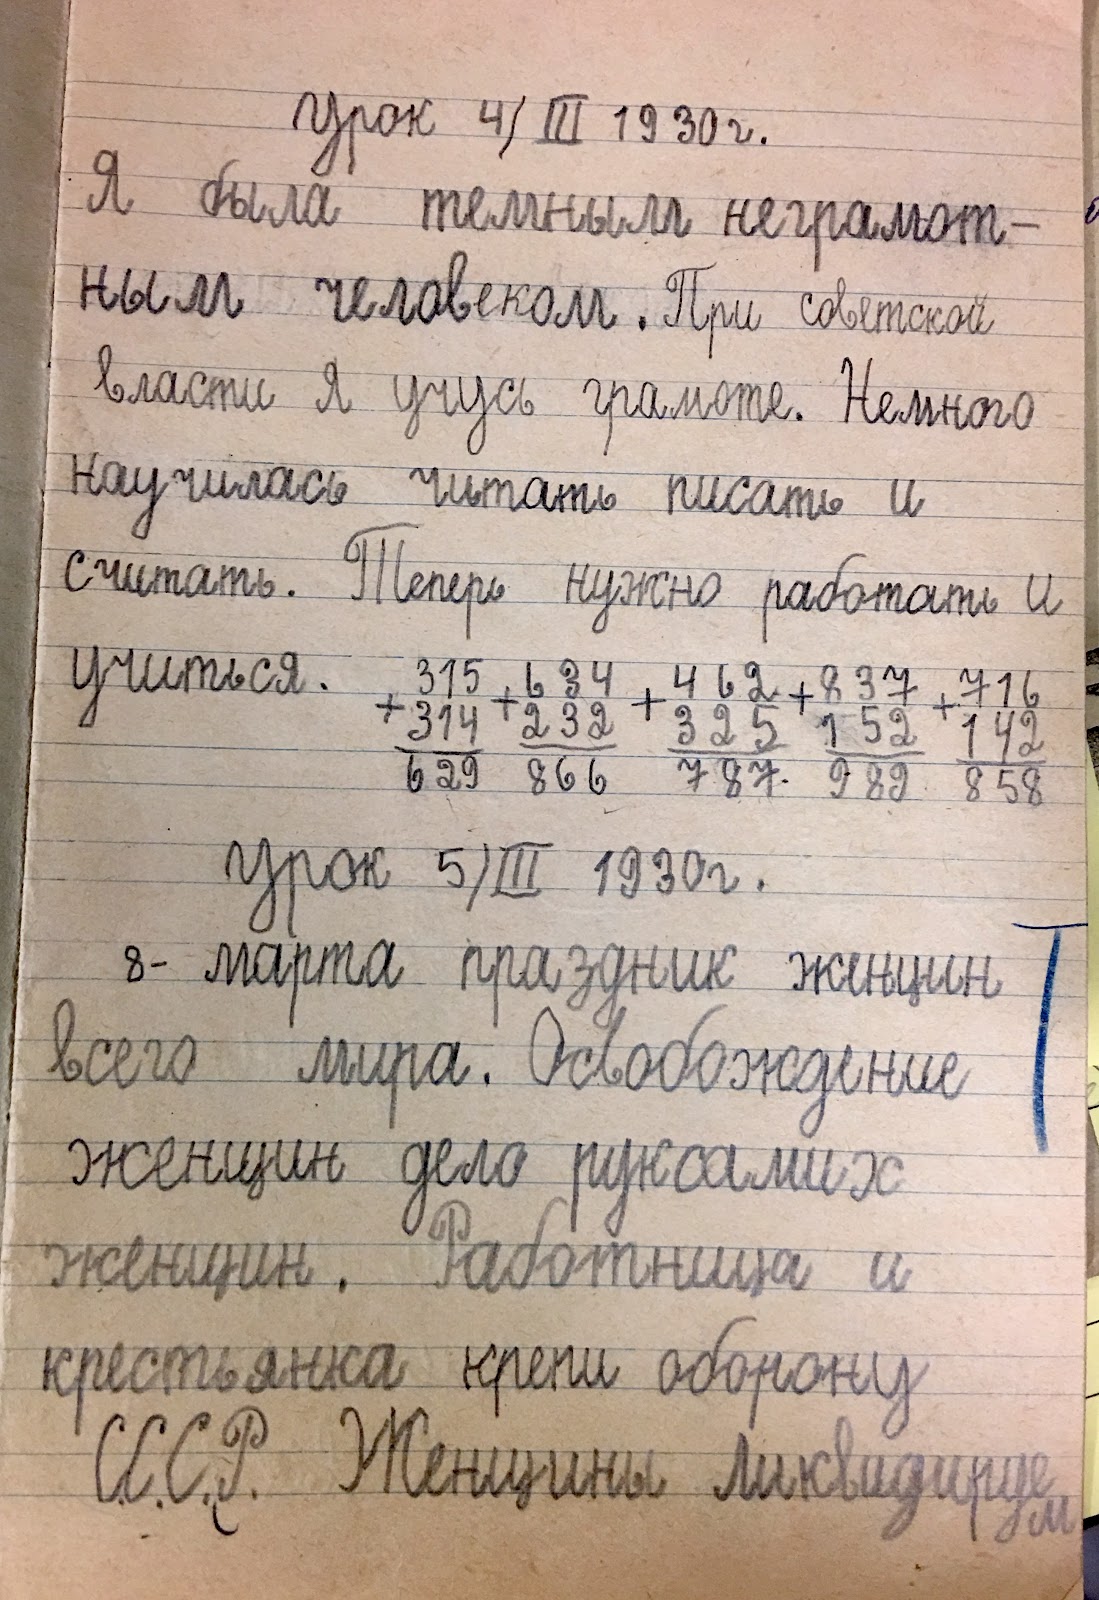 Урок 4/III 1930г.
Я была темным неграмот-
ным человеком. При советской
власти я учусь грамоте. Немного
научилась читать писать и
считать. Теперь нужно работать и
учиться. +315 +634 +462 +837 +716
314 232 325 152 142
629 866 787. 989 858
Урок 5/III 1930г.
8- марта праздник женщин
всего мира. Освобождение
женщин дело руксамих
женщин. Работница и
крестьянка крепи оборону
С.С.С.Р. Женщины ликвидируе
м